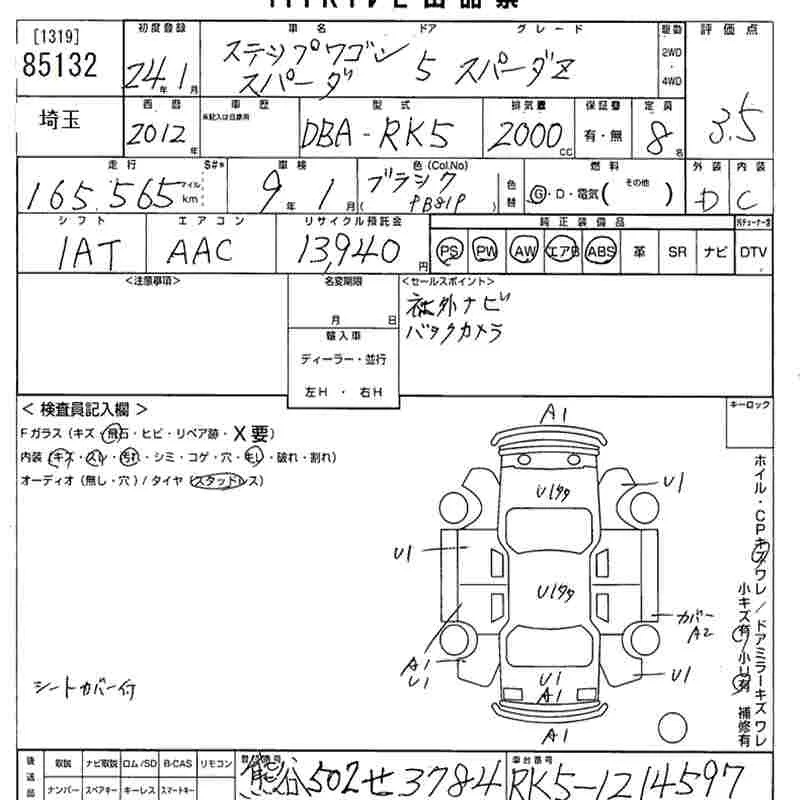 [1319]
85132
初度登録
24年1月
車名
ステップワゴン
スパーダ
ドア
5
グレード
スパーダZ
駆動
2WD
・
4WD
評価点
3.5
埼玉
西暦
2012年
車歴
未記入は自家用
型式
DBA-RK5
排気量
2000CC
保証書
有・無
定員
8名
走行
165,565
マイル
km
S#*
車検
9年1月
色(Col.No)
ブラック
(PB81P)
色替
燃料
G・D・電気(その他)
外装
D
内装
C
シフト
IAT
エアコン
AAC
リサイクル預託金
13,940円
純正装備品
PS PW AW エアB ABS 革 SR ナビ DTV
<注意事項>
名変期限
月 日
輸入車
ディーラー・並行
左H ・ 右H
<セールスポイント>
社外ナビ
バックカメラ
<検査員記入欄>
Fガラス(キズ・飛石・ヒビ・リペア跡・X要)
内装(キズ・スレ・汚れ・シミ・コゲ・穴・モレ・破れ・割れ)
オーディオ(無し・穴)/タイヤ(スタッドレス)
キーロック
A1
U1タタ
U1
U1
U1タタ
カバー
A2
A1
U1
U1
A1
U1
A1
シートカバー付
ホイル・CPキズワレ/ドアミラーキズワレ
小キズ有 小U有 補修有
後送品
取説 ナビ取説 ロム/SD B-CAS リモコン
ナンバー スペアキー キーレス スマートキー
登録番号
熊谷502せ3784
車台番号
RK5-1214597